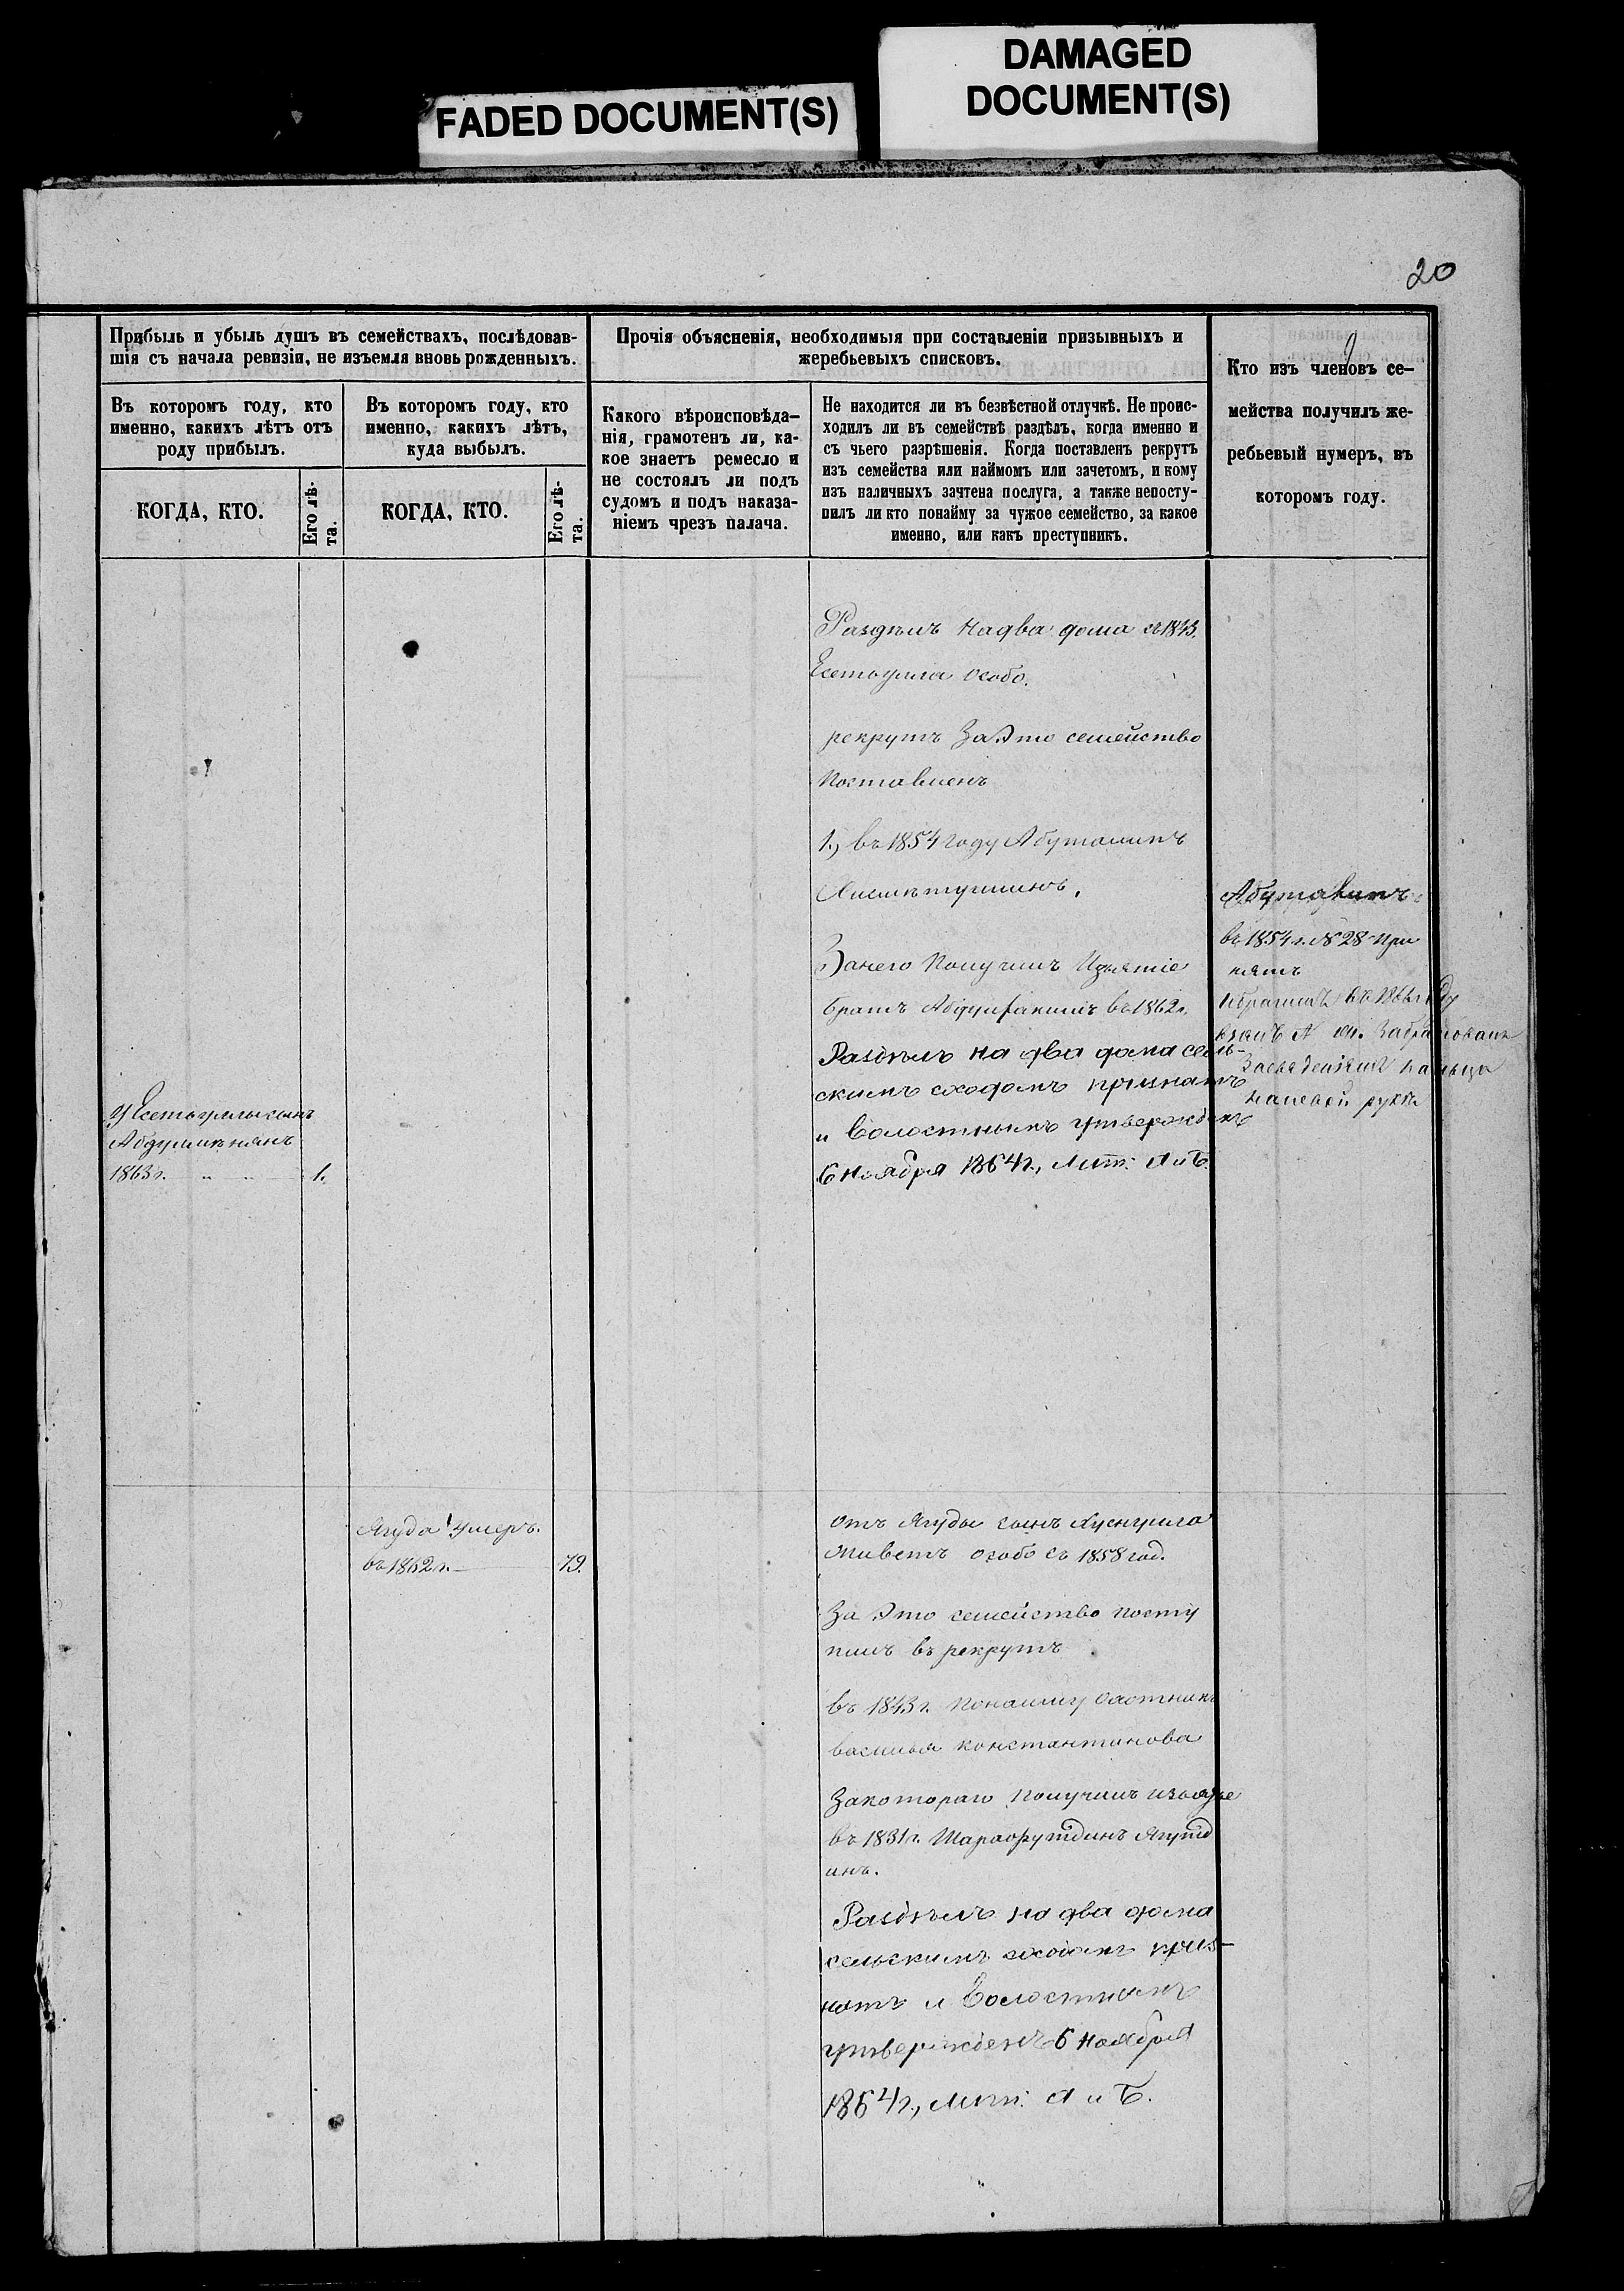 FADED DOCUMENT(S)
DAMAGED
DOCUMENT(S)
20
Прибыль и убыль душъ въ семействахъ, послѣдовав-
шія съ начала ревизіи, не изъемля вновь рожденныхъ.
Въ которомъ году, кто
именно, какихъ лѣтъ отъ
роду прибылъ.
Въ которомъ году, кто
именно, какихъ лѣтъ,
куда выбылъ.
КОГДА, КТО.
Его лѣ-
та.
КОГДА, КТО.
Его лѣ-
та.
Прочія объясненія, необходимыя при составленіи призывныхъ и
жеребьевыхъ списковъ.
Какого вѣроисповѣда-
нія, грамотенъ ли, ка-
кое знаетъ ремесло и
не состоялъ ли подъ
судомъ и подъ наказа-
ніемъ чрезъ палача.
Не находится ли въ безвѣстной отлучкѣ. Не проис-
ходилъ ли въ семействѣ раздѣлъ, когда именно и
съ чьего разрѣшенія. Когда поставленъ рекрутъ
изъ семейства или наймомъ или зачетомъ, и кому
изъ наличныхъ зачтена послуга, а также непосту-
пилъ ли кто понайму за чужое семейство, за какое
именно, или какъ преступникъ.
Кто изъ членовъ се-
мейства получилъ же-
ребьевый нумеръ, въ
которомъ году.
Раздѣлъ на два дома съ
особо.
рекрутъ За Это семейство
Поставленъ
1, въ 1854 году Абуталипъ
За него Получилъ Изъятіе
братъ въ 1862 г.
Раздѣлъ на два дома сель-
скимъ сходомъ признатъ
и Волостнымъ утвержденъ
6 Ноября 1864 г., Лит: А и Б.
въ 1854 г. № 28 При
нятъ
руки
сынъ
1863 г. 1.
Ягуда Умеръ.
въ 1862 г. 79.
отъ Ягуды сынъ
живетъ особо съ 1858 год.
За Это семейство посту
пилъ въ рекрутъ
въ 1843 г. Понайму Охотникъ
василья константинова
За котораго Получилъ
въ 1831 г.
инъ.
Раздѣлъ на два дома
сельскимъ сходомъ приз-
натъ и Волостнымъ
утвержденъ 6 Ноября
1864 г., Лит: А и Б.